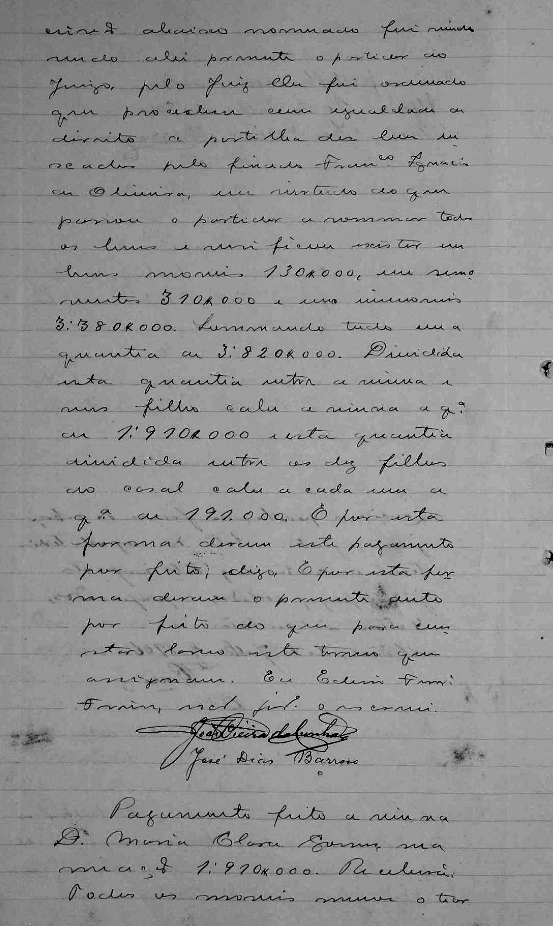 abaixo nomeado fui vindo
sendo ahi presente o partidor do
Juizo, pelo Juiz lhe fui ordenado
que procedesse com igualdade de
direito a partilha dos bens
pelo finado Franco Ignacio
de Oliveira, em virtude do que
passou o partidor a sommar todos
os bens e verificou existir em
bens moveis 130$000, em semo
ventes 310$000 e em immoveis
3:380$000. Sommando tudo em a
quantia de 3:820$000. Dividida
esta quantia entre a viuva e
seus filho cabe a viuva a q.a
de 1:910$000 e esta quantia
dividida entre os dez filhos
do casal cabe a cada um a
q.a de 191.000. E por esta
forma deram este pagamento
por feito; digo, E por esta for
ma deram o presente auto
por feito do que para con
star lavro este termo que
assignam. Eu
o escrevi.
José Vieira da Cunha
José Dias Barroso
Pagamento feito a viuva
D. Maria Clara Gomes, na
1:910$000. Receberá:
Todos os moveis menos o tear